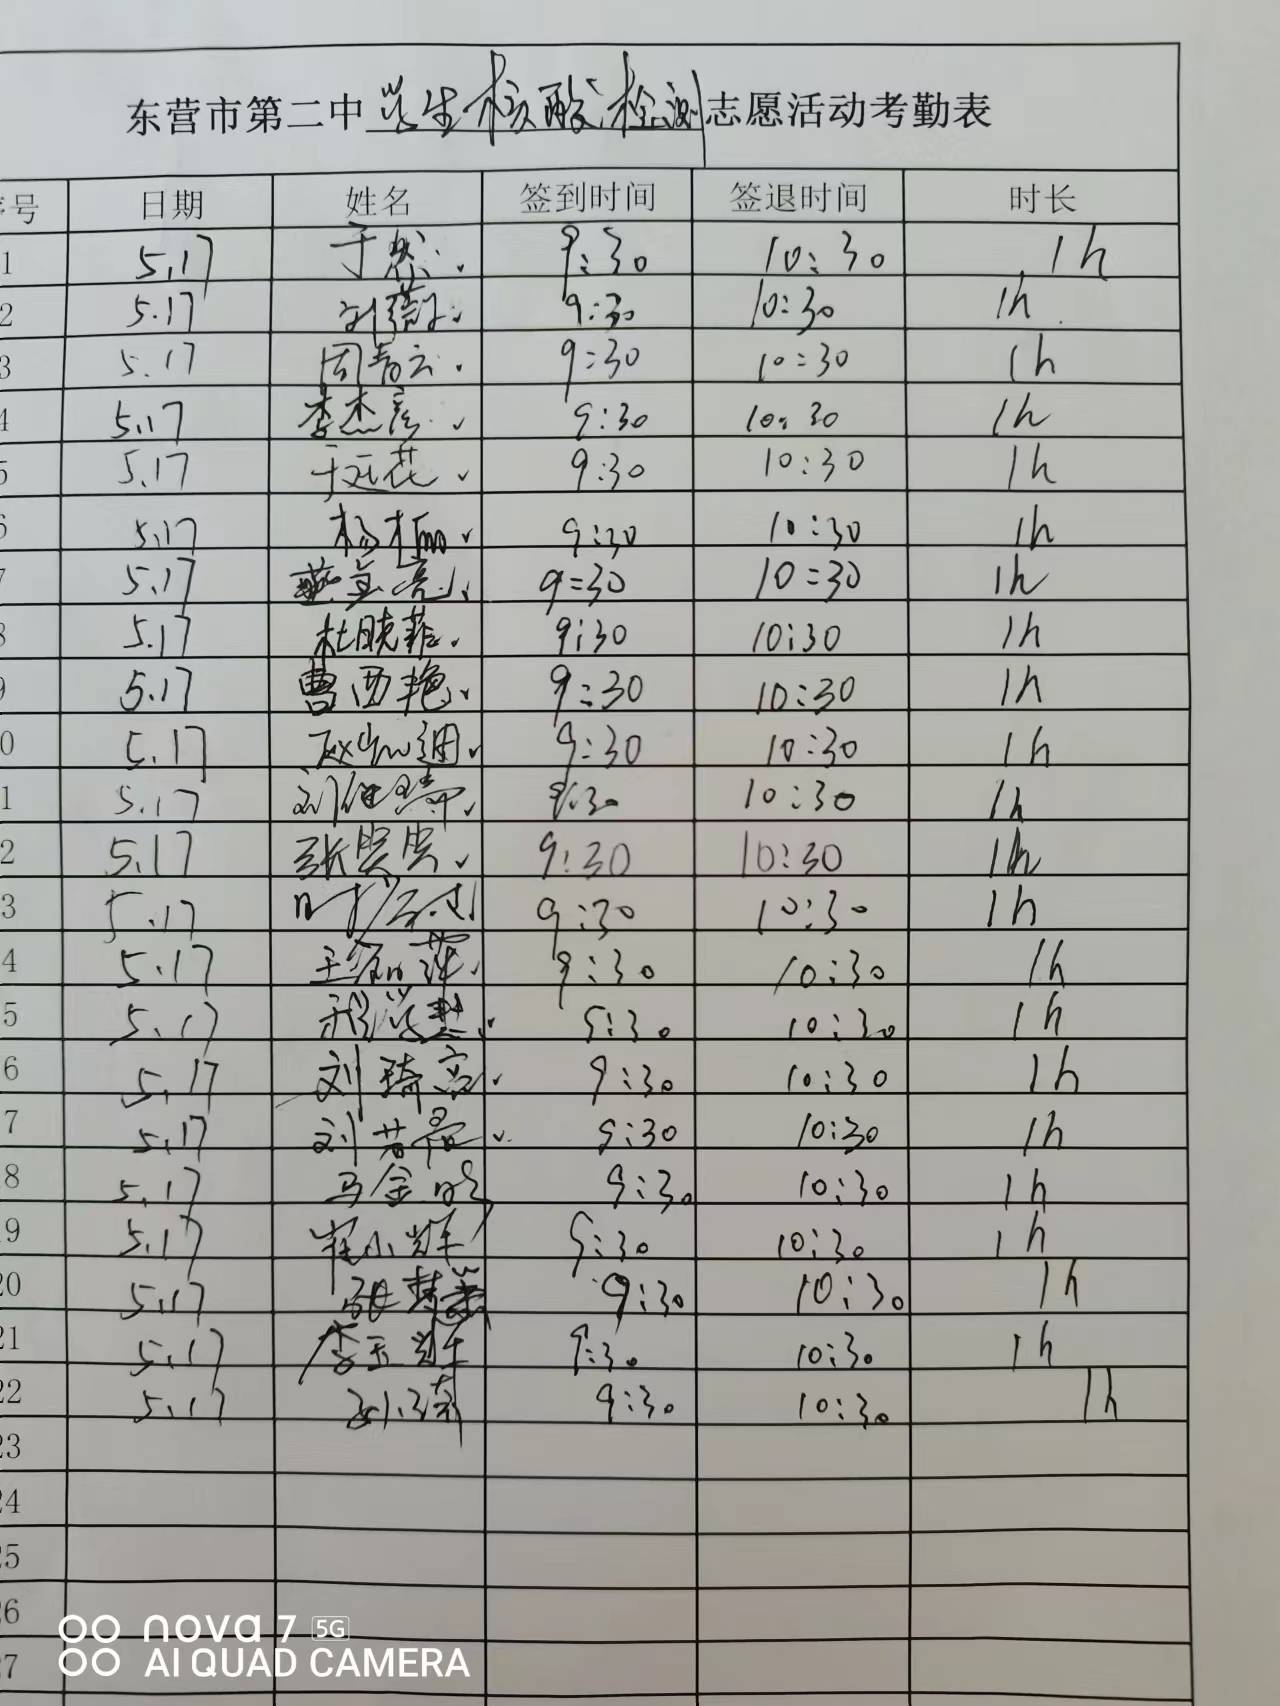 东营市第二中学生核酸检测志愿活动考勤表
序号 日期 姓名 签到时间 签退时间 时长
1 5.17 于悠 9:30 10:30 1h
2 5.17 9:30 10:30 1h
3 5.17 周青云 9:30 10:30 1h
4 5.17 李杰彦 9:30 10:30 1h
5 5.17 于廷花 9:30 10:30 1h
6 5.17 杨栅 9:30 10:30 1h
7 5.17 9:30 10:30 1h
8 5.17 杜晓菲 9:30 10:30 1h
9 5.17 曹西艳 9:30 10:30 1h
0 5.17 9:30 10:30 1h
1 5.17 9:30 10:30 1h
2 5.17 张贝贝 9:30 10:30 1h
3 5.17 9:30 10:30 1h
4 5.17 9:30 10:30 1h
5 5.17 9:30 10:30 1h
6 5.17 刘琦 9:30 10:30 1h
7 5.17 刘若 9:30 10:30 1h
8 5.17 马金 9:30 10:30 1h
9 5.17 崔小辉 9:30 10:30 1h
20 5.17 张慧 9:30 10:30 1h
21 5.17 李玉辉 9:30 10:30 1h
22 5.17 9:30 10:30 1h
23
24
25
26
27
nova 7 5G
AI QUAD CAMERA